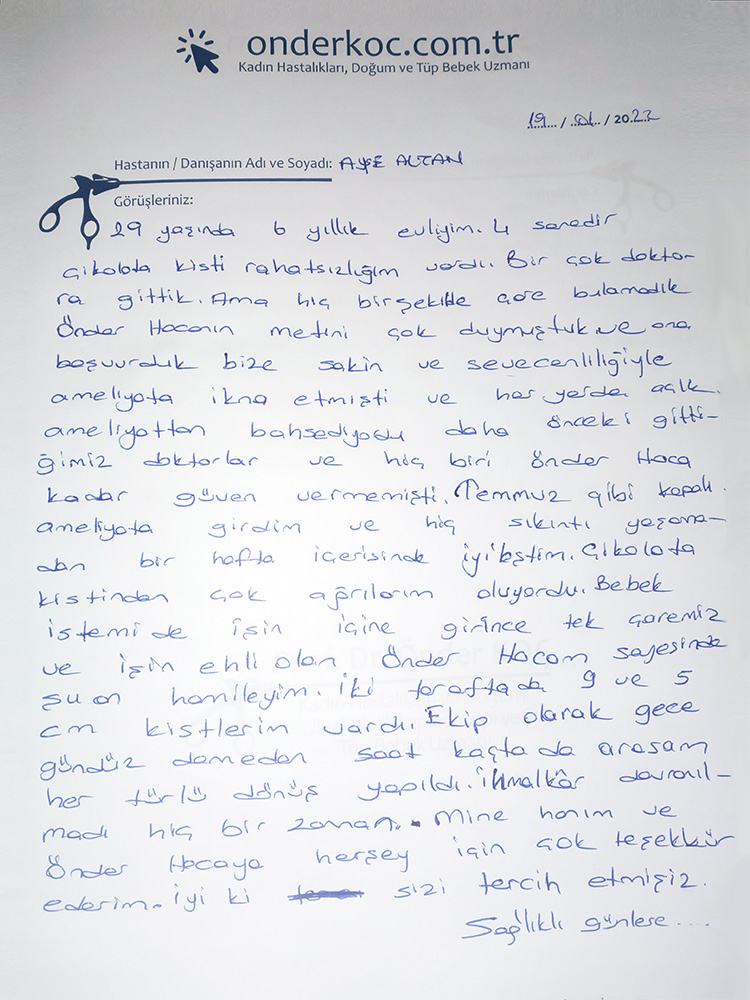 onderkoc.com.tr
Kadın Hastalıkları, Doğum ve Tüp Bebek Uzmanı
19 / 01 / 2022
Hastanın / Danışanın Adı ve Soyadı: AYŞE ALTAN
Görüşleriniz:
29 yaşında 6 yıllık evliyim. 4 senedir
çikolata kisti rahatsızlığım vardı. Bir çok dokto-
ra gittik. Ama hiç birşekilde çare bulamadık
Önder Hocanın metini çok duymuştuk ve ona
başvurduk bize sakin ve sevecenliliğiyle
ameliyata ikna etmişti ve her yerde açık
ameliyattan bahsediyodu daha önceki gitti-
ğimiz doktorlar ve hiç biri Önder Hoca
kadar güven vermemişti. Temmuz gibi kapalı
ameliyata girdim ve hiç sıkıntı yaşama-
dan bir hafta içerisinde iyileştim. Çikolata
kistinden çok ağrılarım oluyordu. Bebek
istemi de işin içine girince tek çaremiz
ve işin ehli olan Önder Hocam sayesinde
şu an hamileyim. İki taraftada 9 ve 5
cm kistlerim vardı. Ekip olarak gece
gündüz demeden saat kaçta da arasam
her türlü dönüş yapıldı. İhmalkâr davranıl-
madı hiç bir zaman. Mine hanım ve
Önder Hocaya herşey için çok teşekkür
ederim. İyi ki sizi tercih etmişiz.
Sağlıklı günlere ...